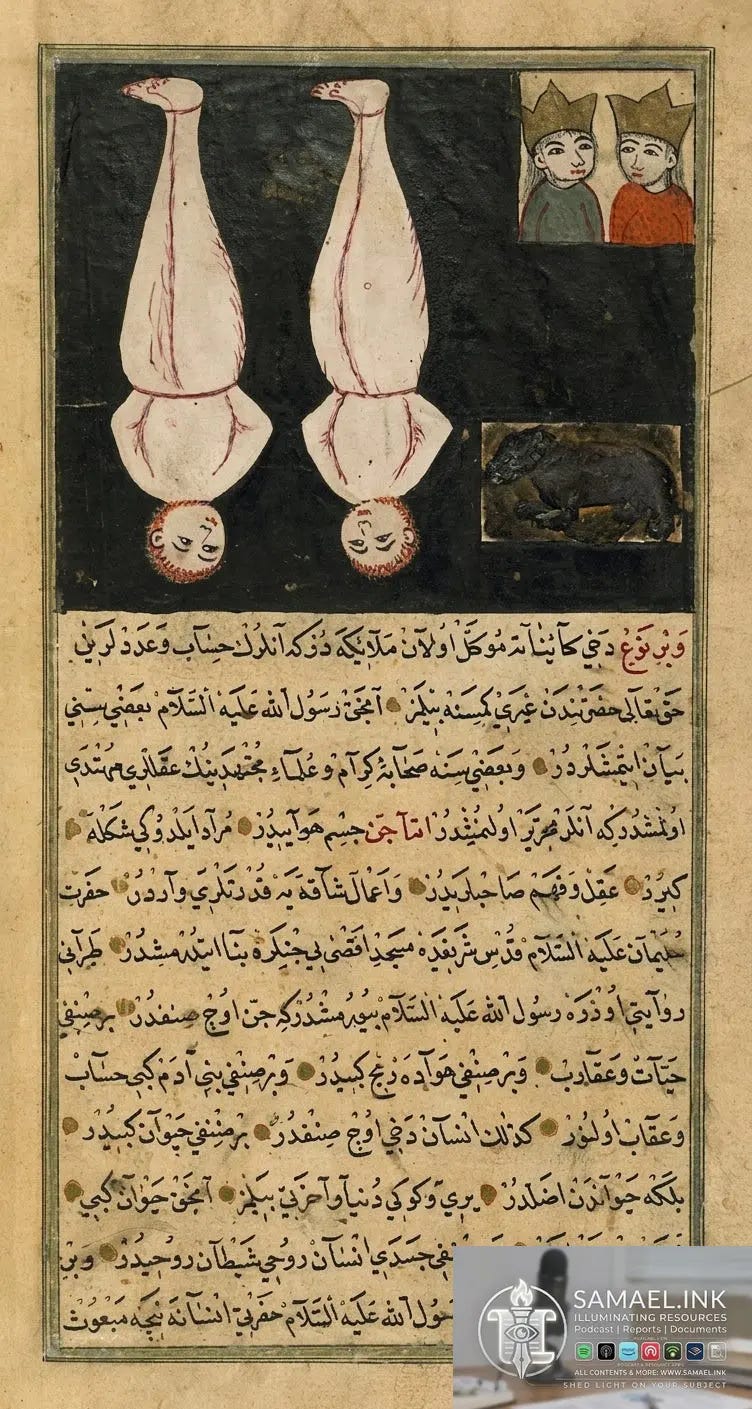 وَبِرْ نَوْعْ دَخِي كَآئِنَاتَه مُوَكَّلْ اُولَانْ مَلَآئِكَه دُرْ كِه آنْلَرُكْ حِسَابْ وَعَدَدْ لَرِينْ
حَقْ تَعَالَى حَضْرَتِنْدَنْ غَيْرِي كِمْسَنَه بِيلْمَزْ آنْجَقْ رَسُولُ اللهْ عَلَيْهِ السَّلَامْ بَعْضِي سِنِي
بَيَانْ اِيتْمِشْلَرْدُرْ وَبَعْضِي سِنَه صَحَابَۀِ كِرَامْ وَعُلَمَاءِ مُجْتَهِدِينُكْ عَقْلْلَرِي مُهْتَدِي
اُولْمَشْدُرْ كِه آنْلَرْ تَحْرِيرْ اُولِنْمِشْدُرْ اَمَّا جِنْ جِسْمِ هَوَآيِيدُرْ مُرَادْ اَيلَدُوكِي شَكْلَه
كِيرُرْ عَقِلْ وَفَهْمْ صَاحِبْلَرِيدُرْ وَاَعْمَالِ شَاقَّه يَه قُدْرَتْلَرِي وَارْدُرْ حَضْرَتِ
سُلَيْمَانْ عَلَيْهِ السَّلَامْ قُدْسِ شَرِيفْدَه مَسْجِدِ اَقْصَى يِي جِنْلَرَه بِنَا اِيتْدُرْمِشْدُرْ طَبَرَانِي
رِوَايَتِي اُوزْرَه رَسُولُ اللهْ عَلَيْهِ السَّلَامْ بُيُورْمَشْدُرْ كِه جِنْ اُوچْ صِنِفْدُرْ بِرْ صِنْفِي
حَيَّاتْ وَعَقَارِبْ وَبِرْ صِنْفِي هَوَادَه رِيحْ كِبِيدُرْ وَبِرْ صِنْفِي بَنِي آدَمْ كِبِي حِسَابْ
وَعِقَابْ اُولُنُورْ كَذَلِكَ اِنْسَانْ دَخِي اُوچْ صِنِفْدُرْ بِرْ صِنْفِي حَيْوَانْ كِبِيدُرْ
بَلْكَه حَيْوَانْدَنْ اَضَلْدُرْ يِرِي وَكُوكِي دُنْيَا وَآخِرَتِي بِيلْمَزْ آنْجَقْ حَيْوَانْ كِبِي
جَسَدِي اِنْسَانْ رُوحِي شَيْطَانْ رُوحِيدُرْ وَبِرْ
رَسُولُ اللهْ عَلَيْهِ السَّلَامْ حَضْرَتِي اِنْسَانَه نِيجَه مَبْعُوثْ
SAMAEL.INK
ILLUMINATING RESOURCES
Podcast | Reports | Documents
ALL CONTENTS & MORE: WWW.SAMAEL.INK
SHED LIGHT ON YOUR SUBJECT